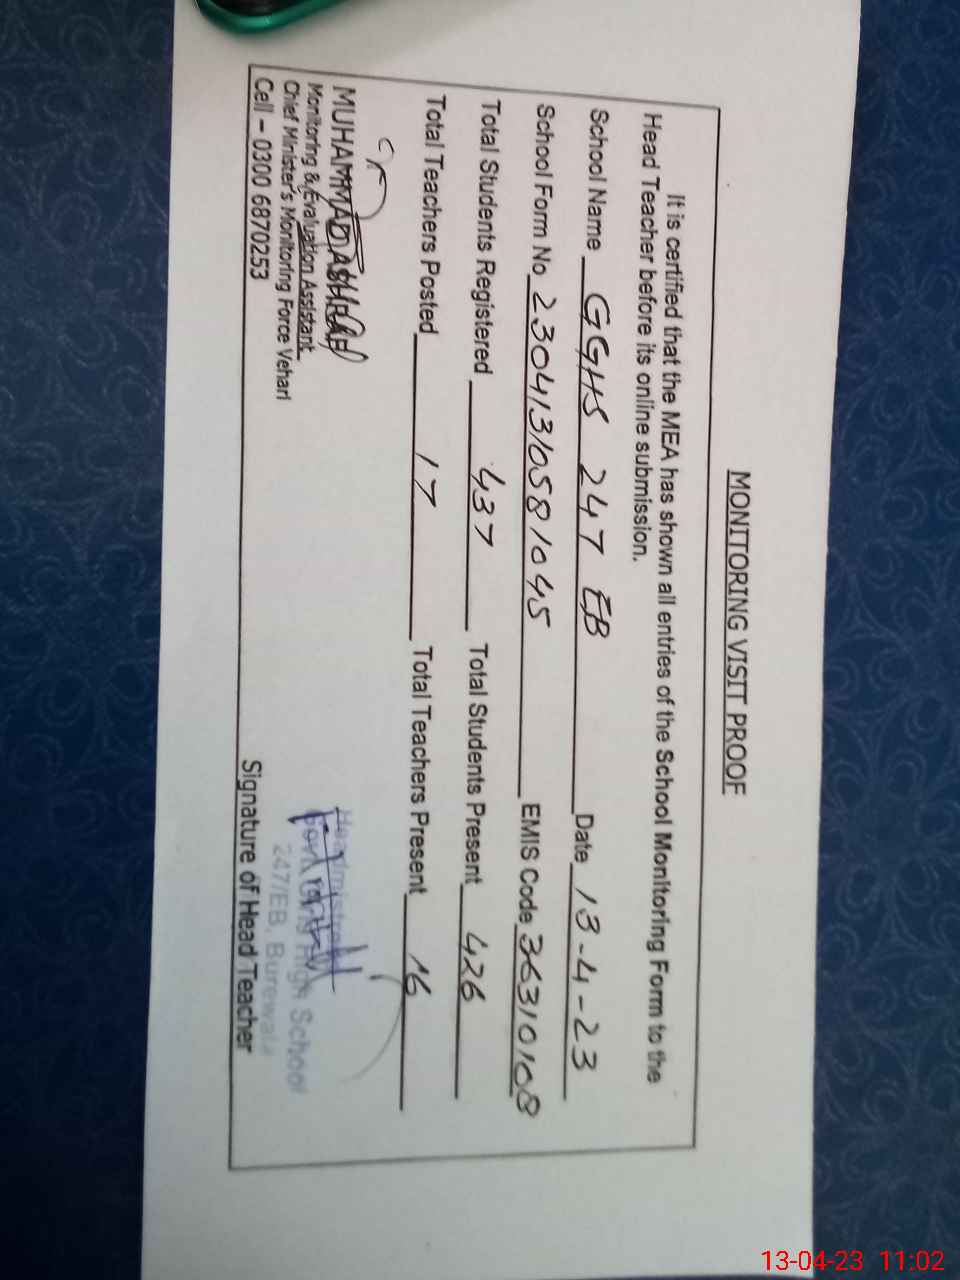 MONITORING VISIT PROOF
It is certified that the MEA has shown all entries of the School Monitoring Form to the
Head Teacher before its online submission.
School Name GGHS 247 EB Date 13-4-23
School Form No 23041310581045 EMIS Code 36310108
Total Students Registered 437 Total Students Present 426
Total Teachers Posted 17 Total Teachers Present 16
MUHAMMAD ASHRAF
Monitoring & Evaluation Assistant
Chief Minister's Monitoring Force Vehari
Cell – 0300 6870253
Headmistress
Govt Girls High School
247/EB, Burewala
Signature of Head Teacher
13-04-23 11:02